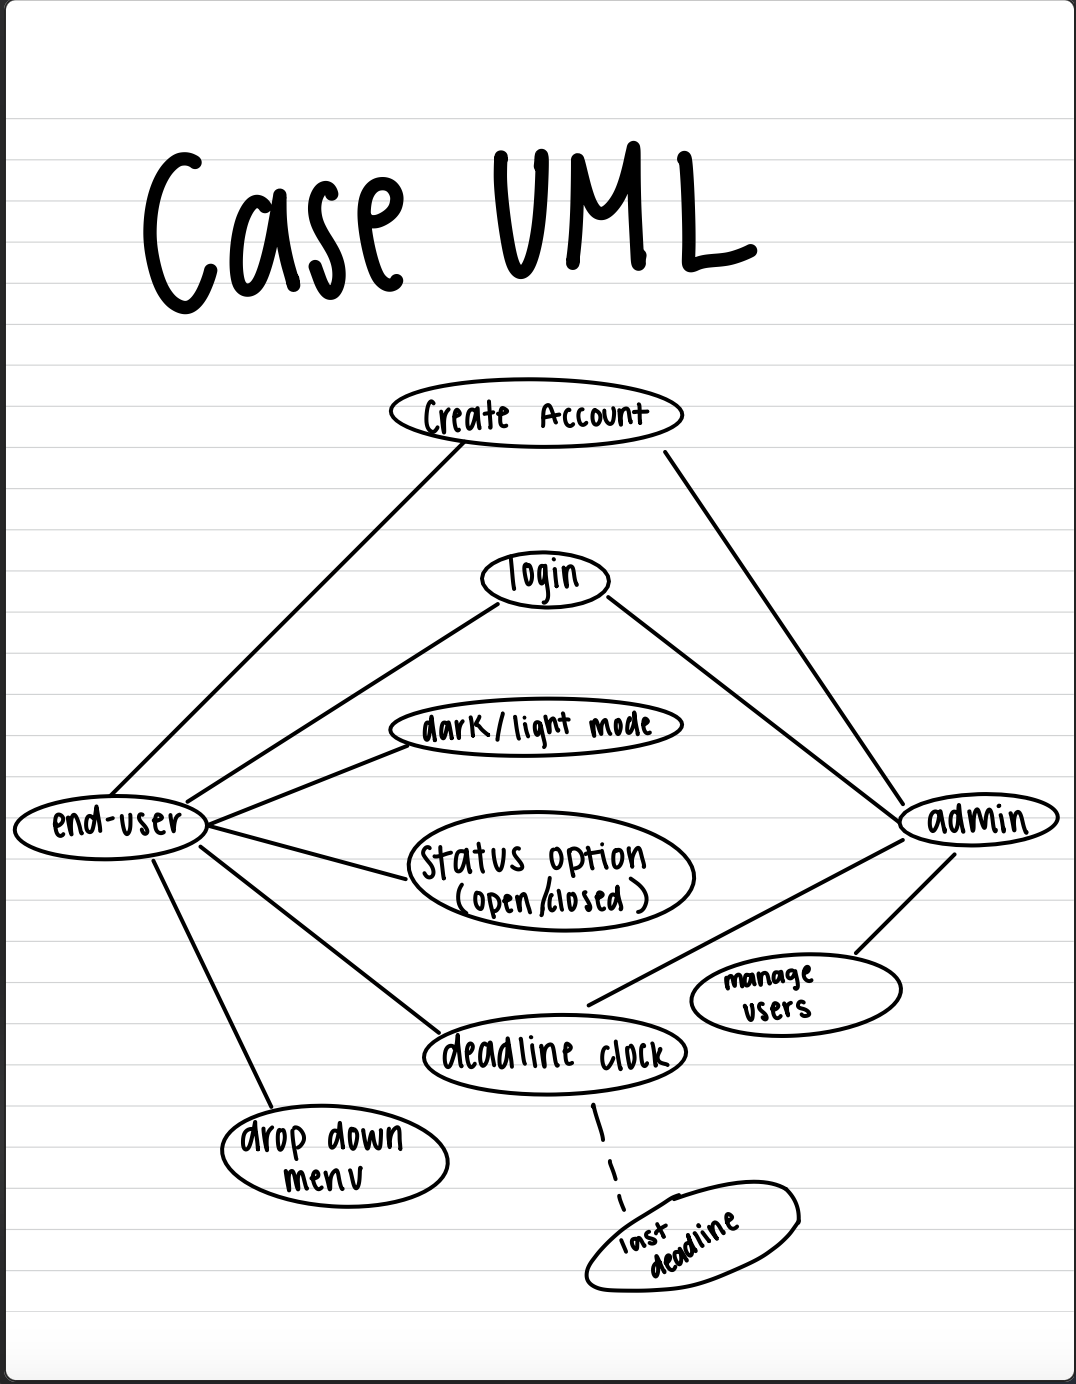 Case UML
Create Account
login
dark/light mode
end-user
admin
Status option
(open/closed)
manage
users
deadline clock
drop down
menu
last
deadline